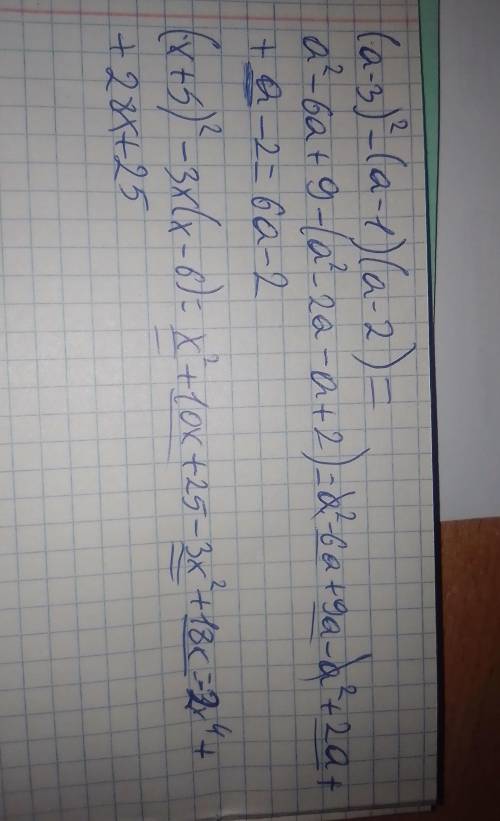 (a-3)² - (a-1)(a-2) =
a² - 6a + 9 - (a² - 2a - a + 2) = a² - 6a + 9a - a² + 2a +
+ a - 2 = 6a - 2
(x+5)² - 3x(x-6) = x² + 10x + 25 - 3x² + 18x = 2x⁴ +
+ 28x + 25